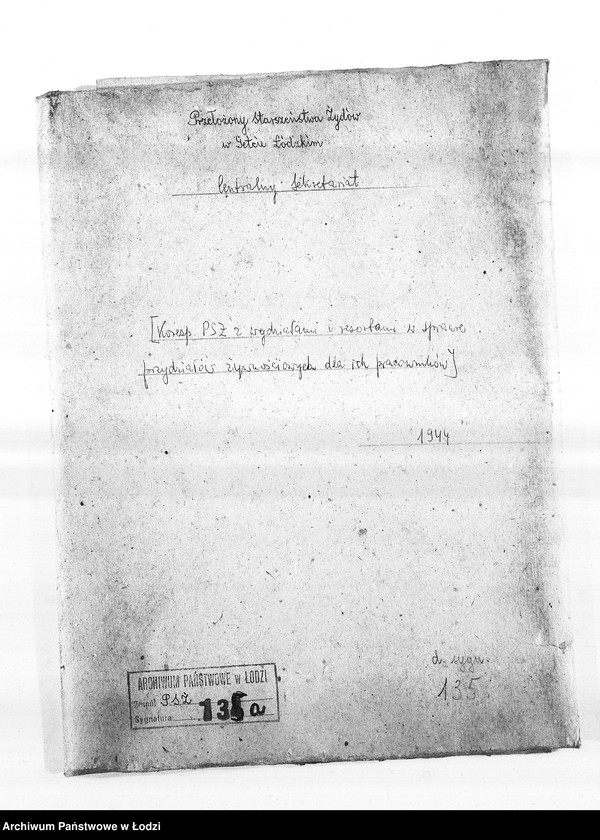 Przełożony Starszeństwa Żydów
w Getcie Łódzkim
Centralny Sekretariat
[Koresp. PSŻ z wydziałami i resortami w sprawie
przydziałów żywnościowych dla ich pracowników]
1944
d. sygn.
135
ARCHIWUM PAŃSTWOWE w ŁODZI
Zespół PSŻ
Sygnatura 135a
Archiwum Państwowe w Łodzi